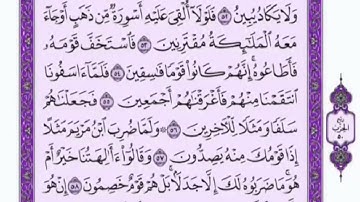 وَلَا يَكَادُ يُبِينُ ٥٢ فَلَوْلَا أُلْقِيَ عَلَيْهِ أَسْوِرَةٌ مِّن ذَهَبٍ أَوْ جَآءَ
مَعَهُ ٱلْمَلَـٰٓئِكَةُ مُقْتَرِنِينَ ٥٣ فَٱسْتَخَفَّ قَوْمَهُۥ
فَأَطَاعُوهُ إِنَّهُمْ كَانُوا۟ قَوْمًا فَـٰسِقِينَ ٥٤ فَلَمَّآ ءَاسَفُونَا
ٱنتَقَمْنَا مِنْهُمْ فَأَغْرَقْنَـٰهُمْ أَجْمَعِينَ ٥٥ فَجَعَلْنَـٰهُمْ
سَلَفًا وَمَثَلًا لِّلْـَٔاخِرِينَ ٥٦ وَلَمَّا ضُرِبَ ٱبْنُ مَرْيَمَ مَثَلًا
إِذَا قَوْمُكَ مِنْهُ يَصِدُّونَ ٥٧ وَقَالُوٓا۟ ءَأَـٰلِهَتُنَا خَيْرٌ أَمْ
هُوَ مَا ضَرَبُوهُ لَكَ إِلَّا جَدَلًۢا بَلْ هُمْ قَوْمٌ خَصِمُونَ ٥٨ إِنْ هُوَ